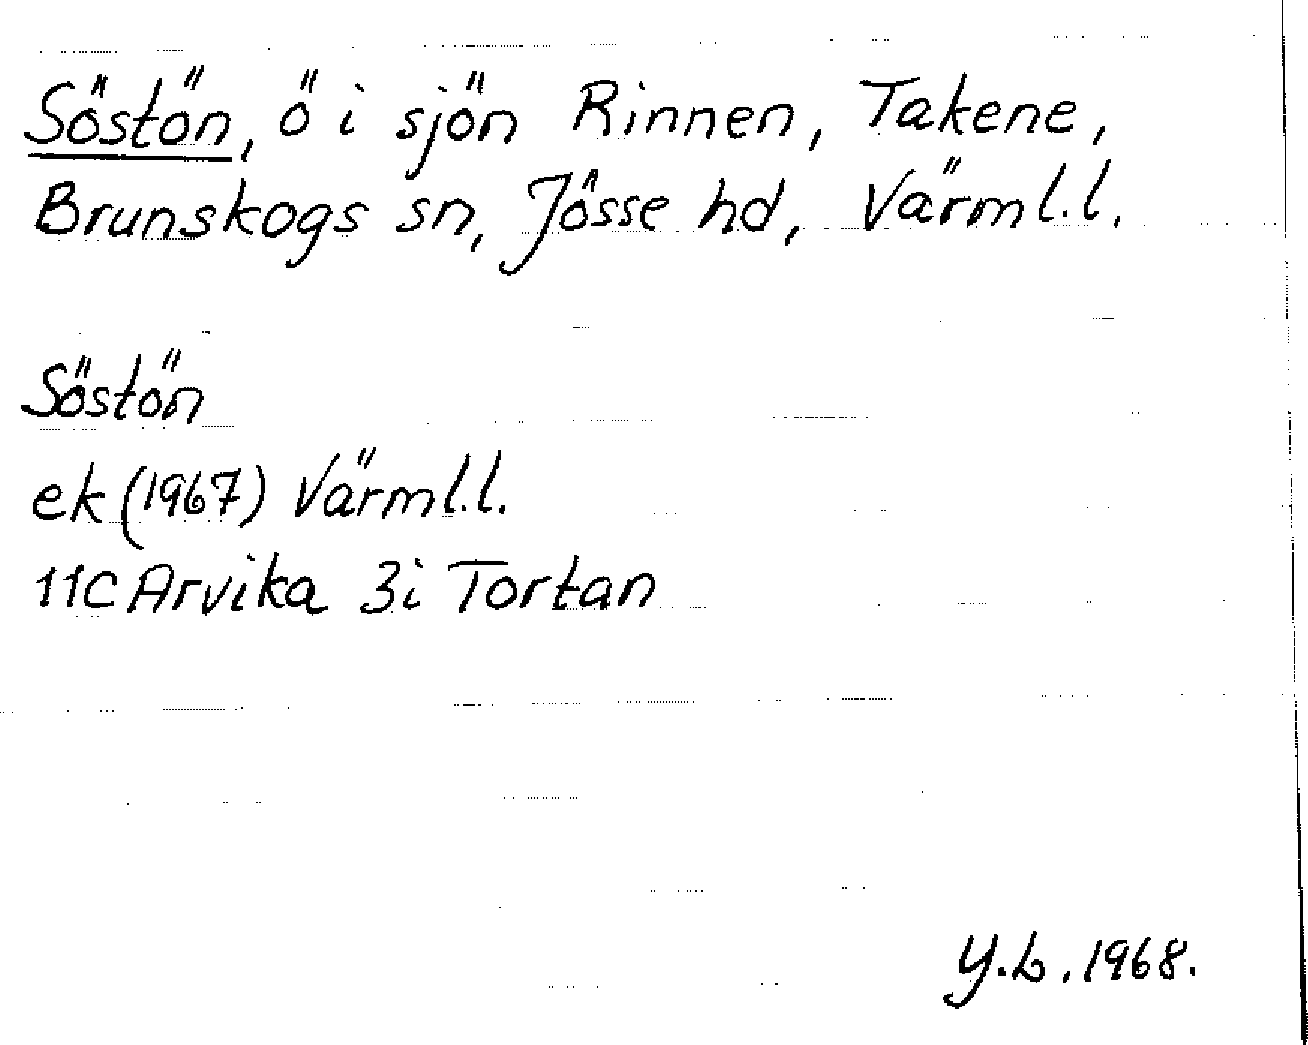 Söstön, ö i sjön Rinnen, Takene,
Brunskogs sn, Jösse hd, Värml.l.
Söstön
ek (1967) Värml.l.
11C Arvika 3i Tortan
Y.L. 1968.